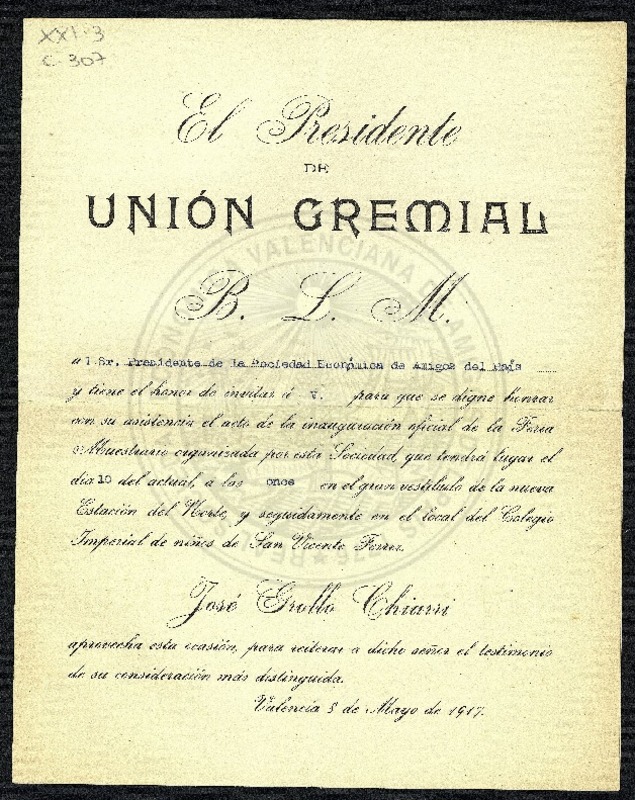 XXI-3
C-307
El Presidente
DE
UNIÓN GREMIAL
B. L. M.
a l Sr. Presidente de la Sociedad Económica de Amigos del País
y tiene el honor de invitar á V. para que se digne honrar
con su asistencia el acto de la inauguración oficial de la Feria
Muestrario organizada por esta Sociedad, que tendrá lugar el
día 10 del actual, a las once en el gran vestíbulo de la nueva
Estación del Norte, y seguidamente en el local del Colegio
Imperial de niños de San Vicente Ferrer.
José Grollo Chiarri
aprovecha esta ocasión, para reiterar a dicho señor el testimonio
de su consideración más distinguida.
Valencia 8 de Mayo de 1917.